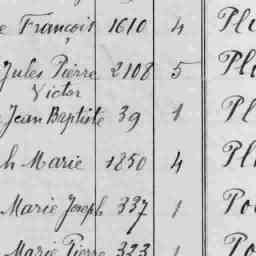 e François 1610 4 Pl
Jules Pierre 2108 5 Pl
Victor
Jean Baptiste 39 1 Pl
h Marie 1850 4 Pl
Marie Joseph 337 1 Po
Marie Pierre 323 1 Po